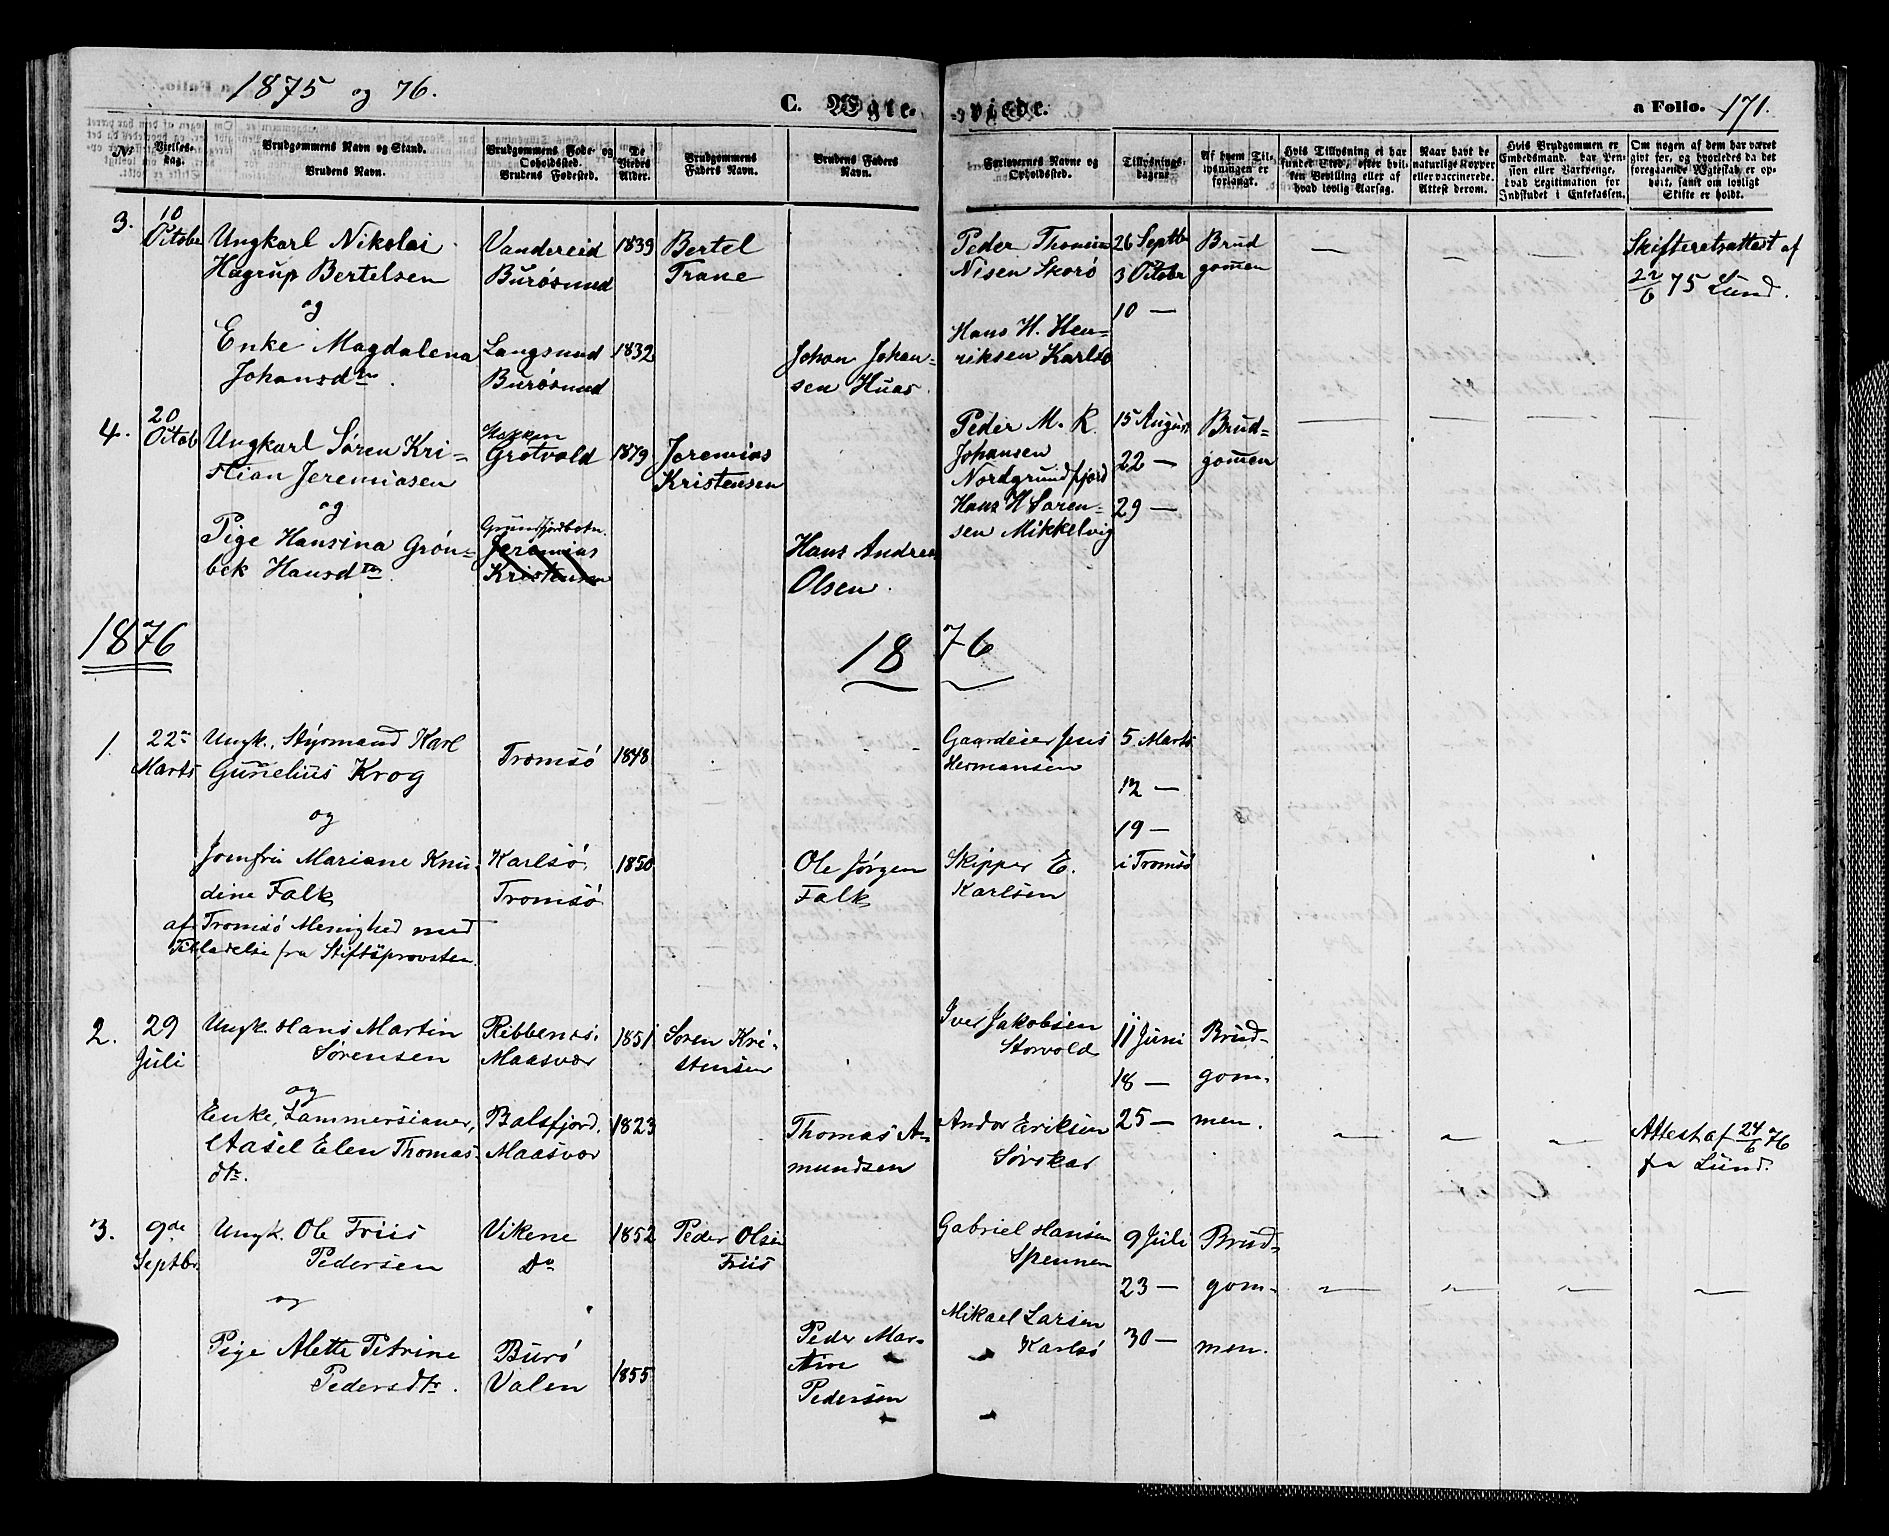 1875 og 76.
C. Ægte-
-viede.
a Folio. 171.
No
Vielses-dag.
Brudgommens Navn og Stand.
Brudens Navn.
Brudgommens Føde- og Opholdssted.
Brudens Fødested.
De Viedes Alder.
Brudgommens Faders Navn.
Brudens Faders Navn.
Forlovernes Navne og Opholdssted.
Tillysnings-dagene.
Af hvem Tillysningen er forlangt.
Hvis Tillysning ei har fundet Sted, efter hvilken Bevilling eller af hvad lovlig Aarsag.
Naar havt de naturlige Kopper eller vaccinerede. Attest derom.
Hvis Brudgommen er Embedsmand, har Pension eller Vartpenge, hvad Legitimation for Indskudet i Enkekassen.
Om nogen af dem har været givt før, og hvorledes da det foregaaende Ægteskab er ophørt, samt om lovligt Skifte er holdt.
3.
10 Octobr
Ungkarl Nikolai
Hagrup Bertelsen
og
Enke Magdalena
Johansdtr.
Vandereid
Burøsund
Langsund
Burøsund
1839
1832
Bertel
Trane
Johan Johan-
sen Huas
Peder Thomas
Nisen Skorø
Hans H. Hen-
riksen Karlsø
26 Septbr
3 Octobr
10 —
Brud
gommen
— — —
Skifteretsattest af
22/6 75 Lund.
4.
20 Octob
Ungkarl Søren Kri-
stian Jeremiasen
og
Pige Hansina Grøn-
bek Hansdtr.
Hakken
Grotvold
Grundfjordbotn.
Jeremias
Kristensen
1879
Jeremias
Kristensen
Hans Andreas
Olsen
Peder M. R.
Johansen
Nordgrundfjord
Hans H Søren-
sen Mikkelvig
15 August
22 —
29 —
Brud-
gommen
— — — —
1876
18 76
1.
22de
Marts
Ungk., Styrmand Karl
Gunelius Krog
og
Jomfru Mariane Knu-
dine Falk
af Tromsø Menighed med
Tilladelse fra Stiftsprovsten.
Tromsø
Karlsø,
Tromsø
1848
1850
Ole Jørgen
Falk
Gaardeier Jens
Hermansen
Skipper E.
Karlsen
5 Marts
12 —
19 —
i Tromsø
2.
29
Juli
Ungk. Hans Martin
Sørensen
og
Enke,
Aasel Elen Thomas-
dtr.
Ribbenes.
Maasvær
Balsfjord.
Maasvær
1851
1823
Søren Kri-
stensen
Thomas A-
mundsen
Iver Jakobsen
Storvold
Andor Eriksen
Sørskar
11 Juni
18 —
25 —
Brud-
gom-
men.
— — —
Attest af 24/6 76
fra Lund.
3.
9de
Septbr.
Ungk. Ole Friis
Pedersen
og
Pige Alette Petrine
Pedersdtr.
Vikene
Do
Burø
Valen
1852
1855
Peder Olsen
Friis
Peder Mar-
tin
Pedersen
Gabriel Hansen
Spennen
Mikael Larsen
Karlsø
9 Juli
23 —
30 —
Brud-
gom-
men.
— — — —